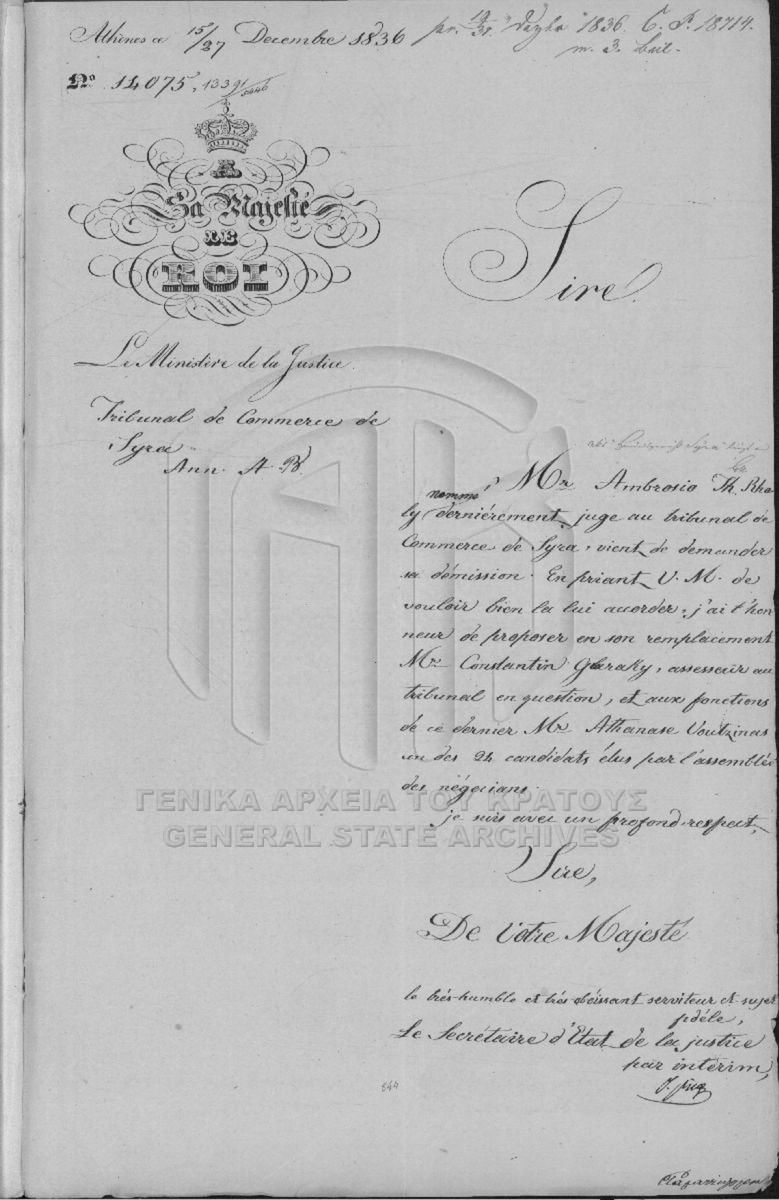 Athènes ce 15/27 Decembre 1836
pr. 19/31 Dezbr 1836. C. P. 18714.
m. 3. beil.
No. 14075, 13391/5446
A
Sa Majesté
LE
ROI
Sire
Le Ministère de la Justice.
Tribunal de Commerce de
Syra
Ann. A. B.
Mr Ambrosio Th. Rha-
nommé
ly dernièrement juge au tribunal de
Commerce de Syra, vient de demander
sa démission. En priant V. M. de
vouloir bien la lui accorder, j'ai l'hon
neur de proposer en son remplacement
Mr Constantin Glaraky, assesseur au
tribunal en question, et aux fonctions
de ce dernier Mr Athanase Voutzinas
un des 24 candidats élus par l'assemblée
des négocians.
je suis avec un profond respect,
Sire,
De Votre Majesté
le très-humble et très-obéissant serviteur et sujet
fidéle,
Le Secrétaire d'Etat de la justice
par intérim,
644
ΓΕΝΙΚΑ ΑΡΧΕΙΑ ΤΟΥ ΚΡΑΤΟΥΣ
GENERAL STATE ARCHIVES